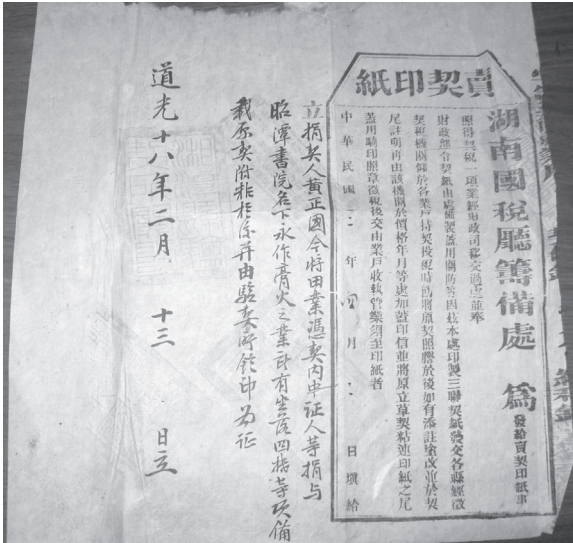 賣契印紙
湖南國稅廳籌備處 爲
發給賣契印紙事
照得契稅一項業經財政司移交過處並奉
財政部令契紙由處備製蓋用關防等因茲本處印製三聯契紙發交各縣經徵
契稅機關仰於各業戶持契投稅時詣將原契照謄於後如有添註塗改並於契
尾註明再由該機關於價格年月等處加蓋印信並將原立草契粘連印紙之尾
蓋用騎印照章徵稅後交由業戶收執管業須至印紙者
中華民國三年 月 日填給
立捐契人黃正國今將田業憑契內中証人等捐与
昭潭書院名下永作膏火之業所有坐落四抵等項備
載原契附粘於後并由騎縫所鈐印為证
道光十八年二月 十三 日立